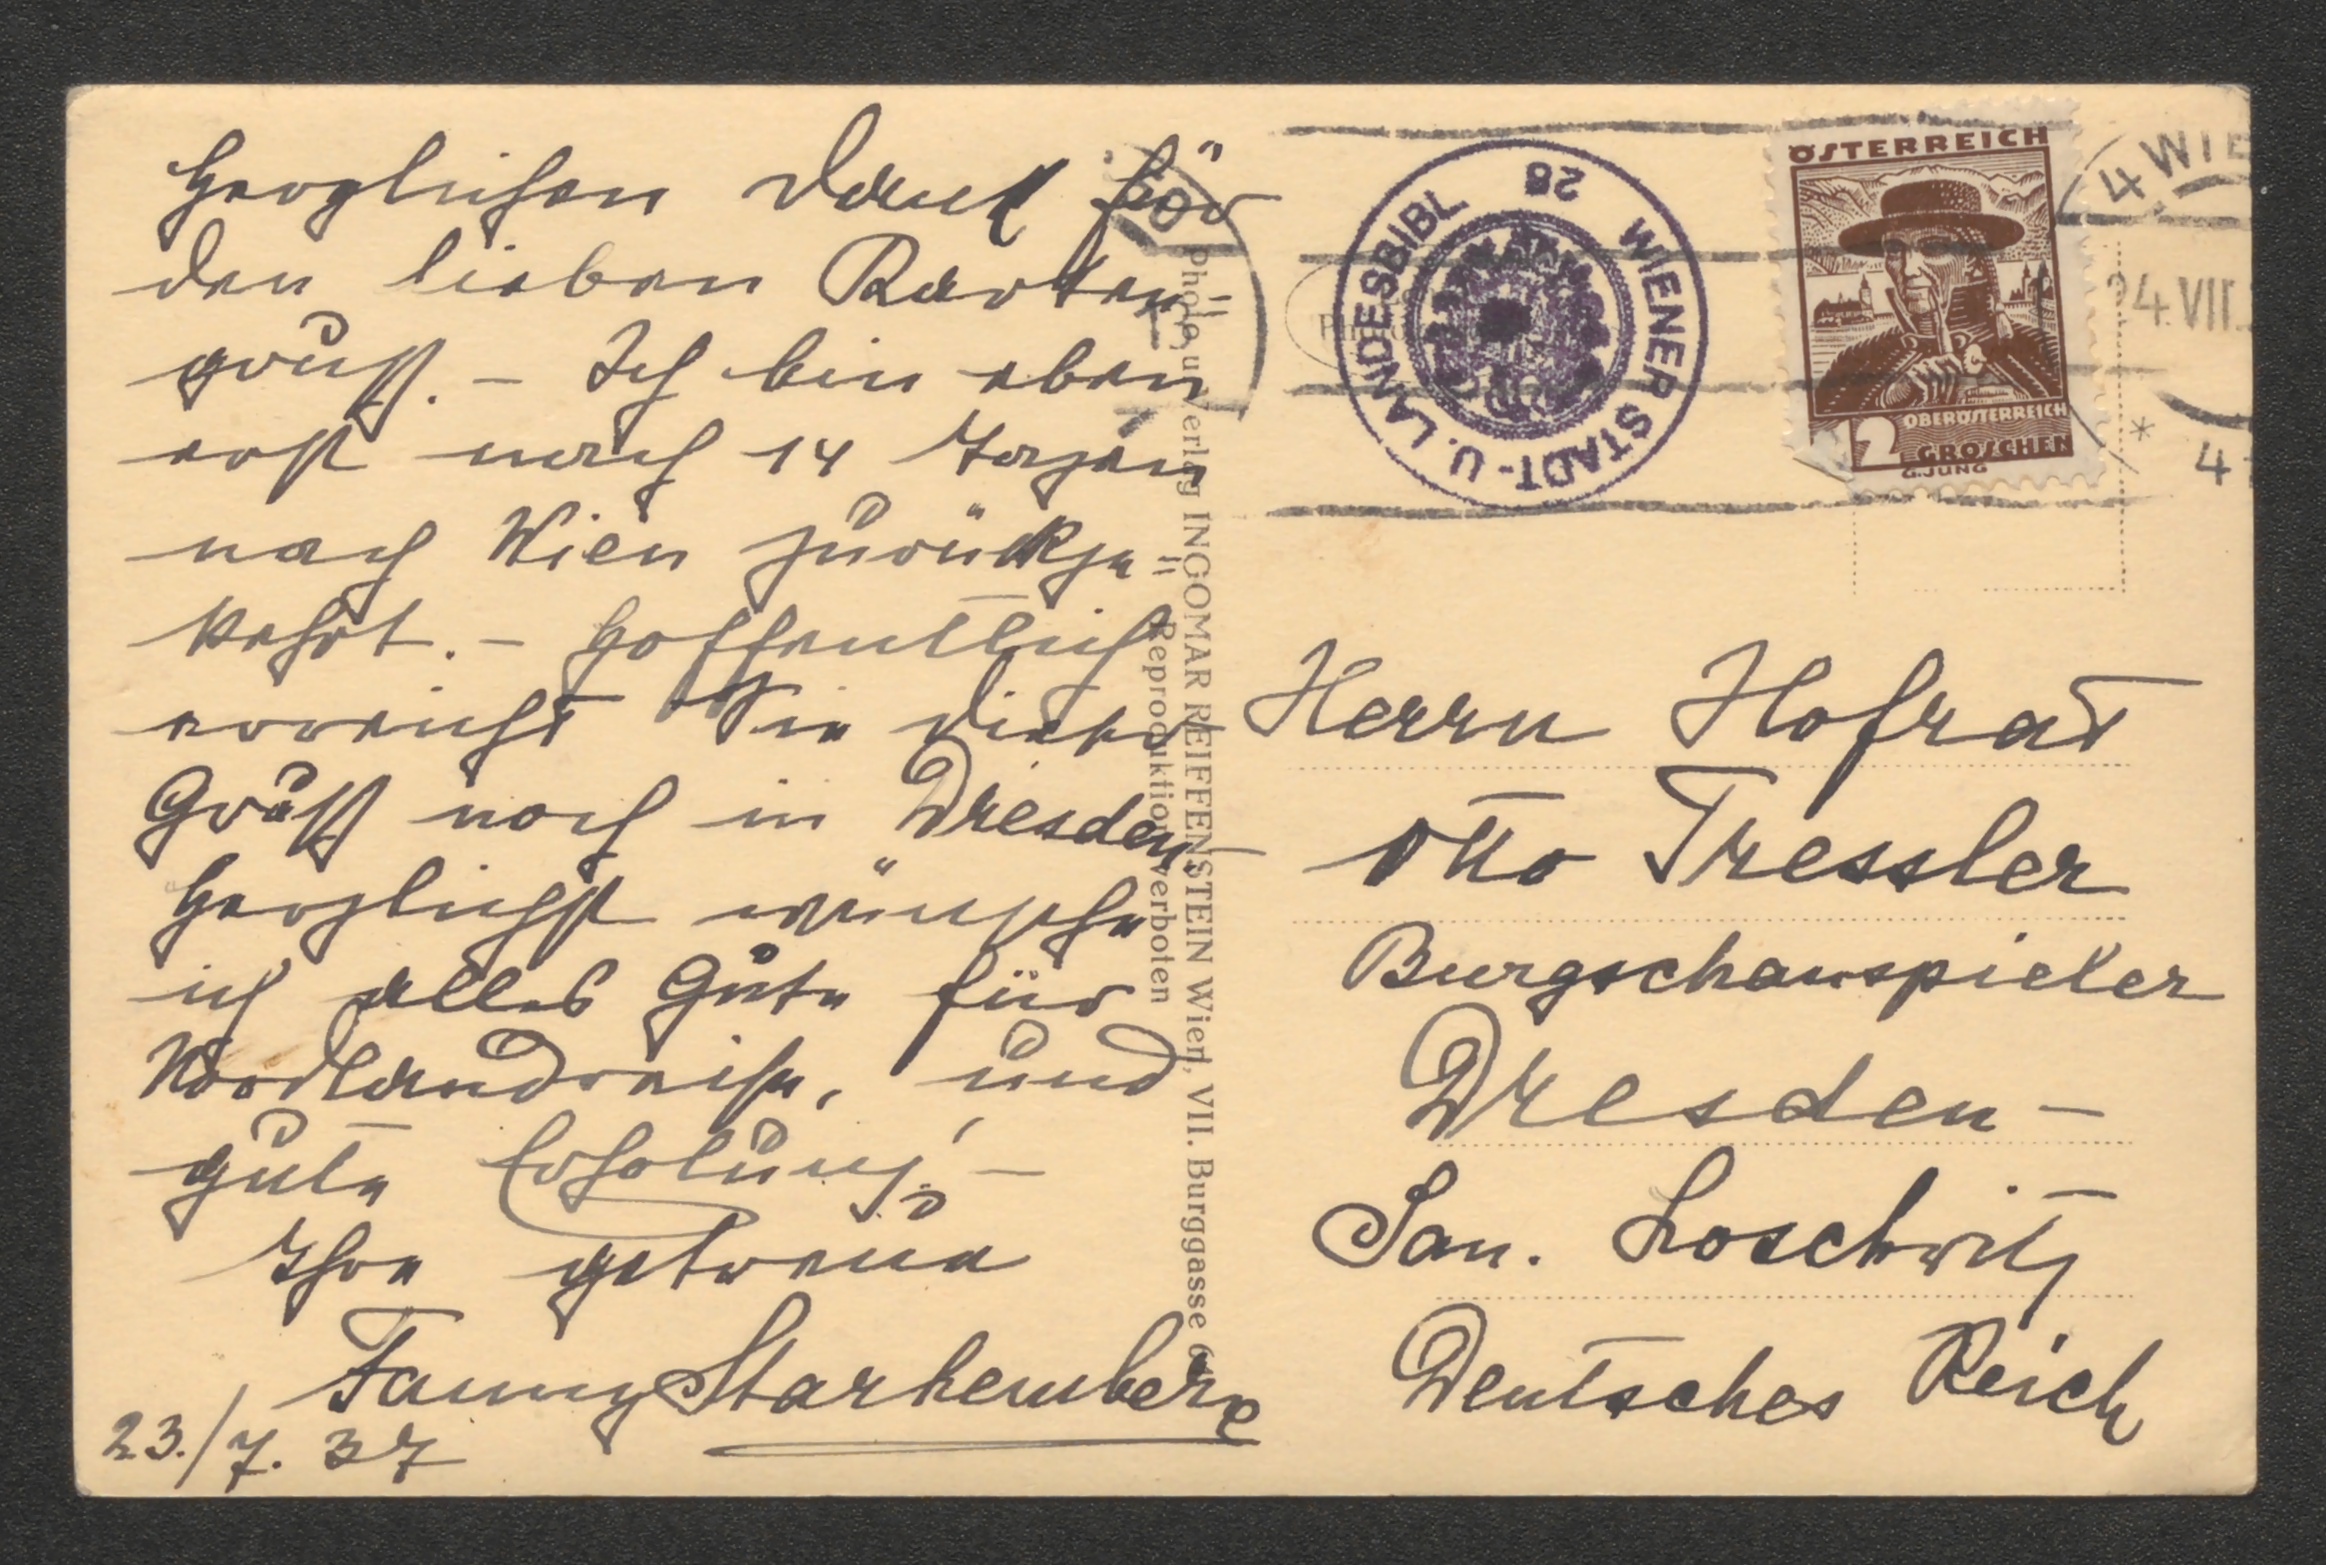 Herzlichen Dank für
den lieben Karten=
gruß. – Ich bin eben
erst nach 14 Tagen
nach Wien zurückge=
kehrt. – Hoffentlich
erreicht Sie dieser
Gruß noch in Dresden
Herzlichst wünsche
ich alles Gute für
Nordlandreise, und
gute Erholung! –
Ihre getreue
Fanny Starhemberg
23./7. 37
Photo u. Verlag INGOMAR REIFFENSTEIN Wien, VII. Burggasse
Reproduktion verboten
WIENER STADT- U. LANDESBIBL
28
ÖSTERREICH
OBERÖSTERREICH
12 GROSCHEN
G. JUNG
4 WIE
24. VII.
* 4
Herrn Hofrat
Otto Tressler
Burgschauspieler
Dresden –
San. Loschwitz
Deutsches Reich